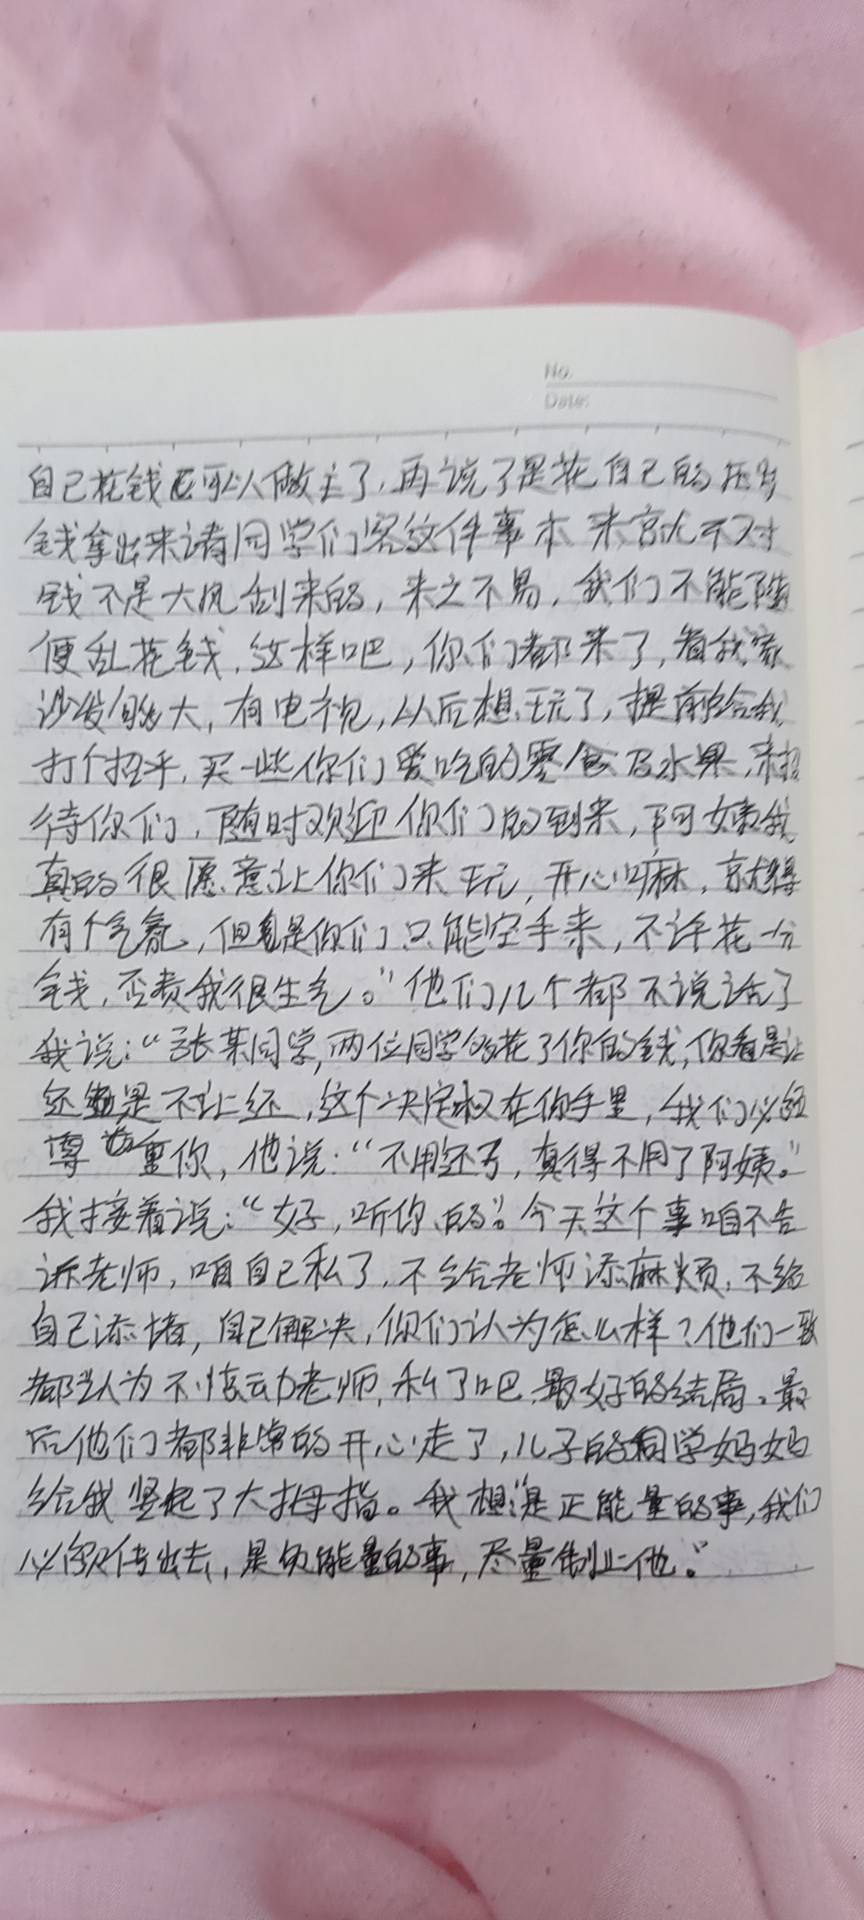 No.
Date:
自己花钱可以做主了，再说了是花自己的压岁
钱拿出来请同学们客这件事本来就不对
钱不是大风刮来的，来之不易，我们不能随
便乱花钱，这样吧，你们都来了，看我家
沙发够大，有电视，从后想玩了，提前给我
打个招乎，买一些你们爱吃的零食及水果，来招
待你们，随时欢迎你们的到来，阿姨我
真的很愿意让你们来玩，开心嘛，就得
有个气氛，但是你们只能空手来，不许花一分
钱，否责我很生气。”他们几个都不说话了
我说：“张某同学，两位同学花了你的钱，你看是让
还是不让还，这个决定权在你手里，我们必须
尊重你，他说：“不用还了，真得不用了阿姨。”
我接着说：“好，听你的”。今天这个事咱不告
诉老师，咱自己私了，不给老师添麻烦，不给
自己添堵，自己解决，你们认为怎么样？他们一致
都认为不惊动老师，私了吧，最好的结局。最
后他们都非常的开心走了，儿子的同学妈妈
给我竖起了大拇指。我想：“是正能量的事，我们
必须传出去，是负能量的事，尽量制止他。”